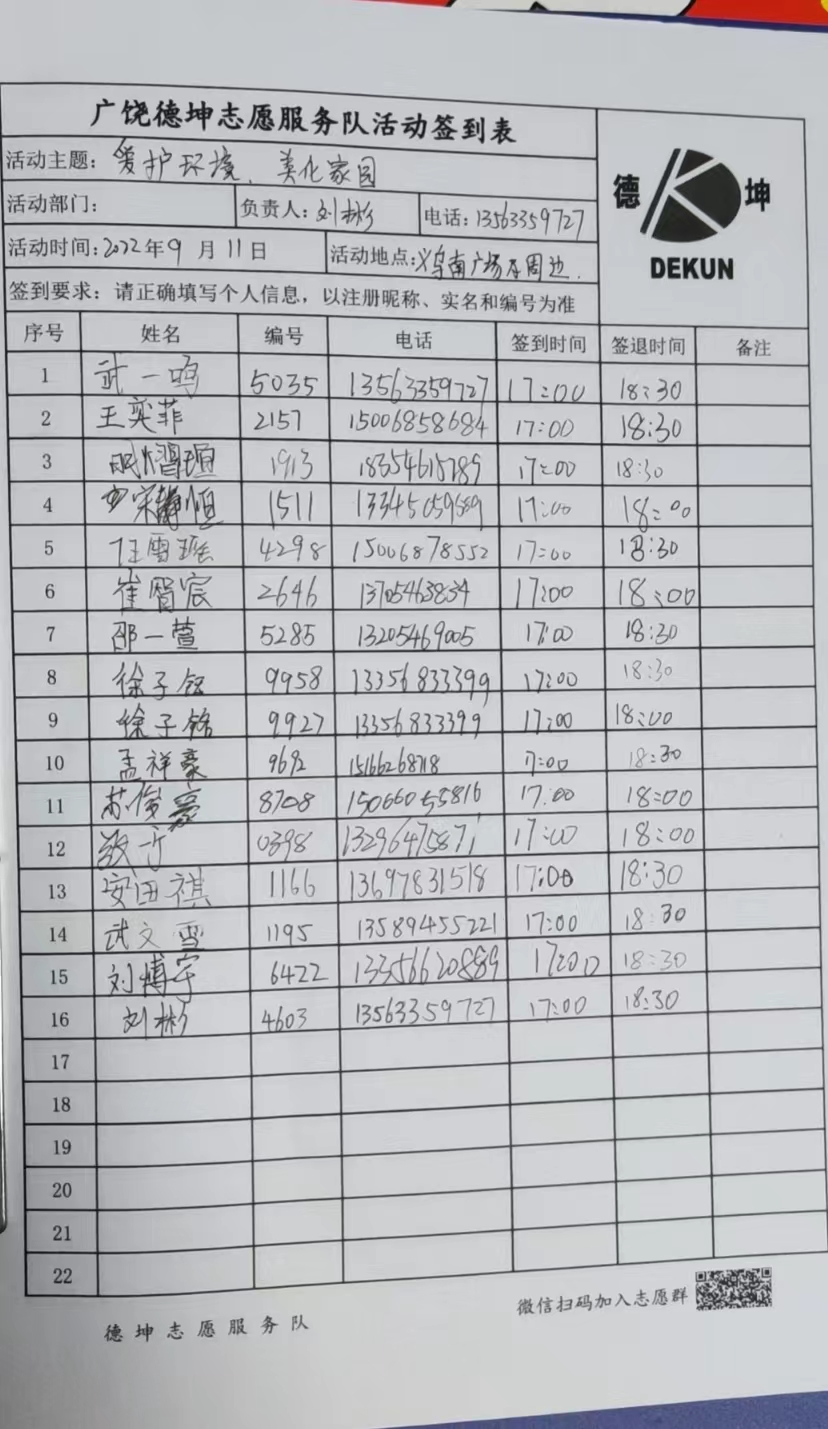 广饶德坤志愿服务队活动签到表
活动主题：爱护环境、美化家园
活动部门： 负责人：刘彬 电话：13563359727
活动时间：2022年9月11日 活动地点：义乌南广场及周边.
签到要求：请正确填写个人信息，以注册昵称、实名和编号为准
德 坤
DEKUN
序号 姓名 编号 电话 签到时间 签退时间 备注
1 武一鸣 5035 13563359727 17:00 18:30
2 王奕菲 2157 15006858684 17:00 18:30
3 1913 17:00 18:30
4 宋静恒 1511 13345059589 17:00 18:00
5 任雪瑶 4298 15006878552 17:00 18:30
6 崔智宸 2646 13705463834 17:00 18:00
7 邵一萱 5285 13205469005 17:00 18:30
8 徐子钰 9958 13356833399 17:00 18:30
9 徐子铭 9927 13356833399 17:00 18:00
10 孟祥豪 9692 15166268718 17:00 18:30
11 苏俊豪 8708 15066055816 17:00 18:00
12 0398 13296475871 17:00 18:00
13 安田祺 1166 13697831518 17:00 18:30
14 武文雪 1195 13589455221 17:00 18:30
15 刘博宇 6422 13356620889 17:00 18:30
16 刘彬 4603 13563359727 17:00 18:30
17
18
19
20
21
22
德坤志愿服务队
微信扫码加入志愿群